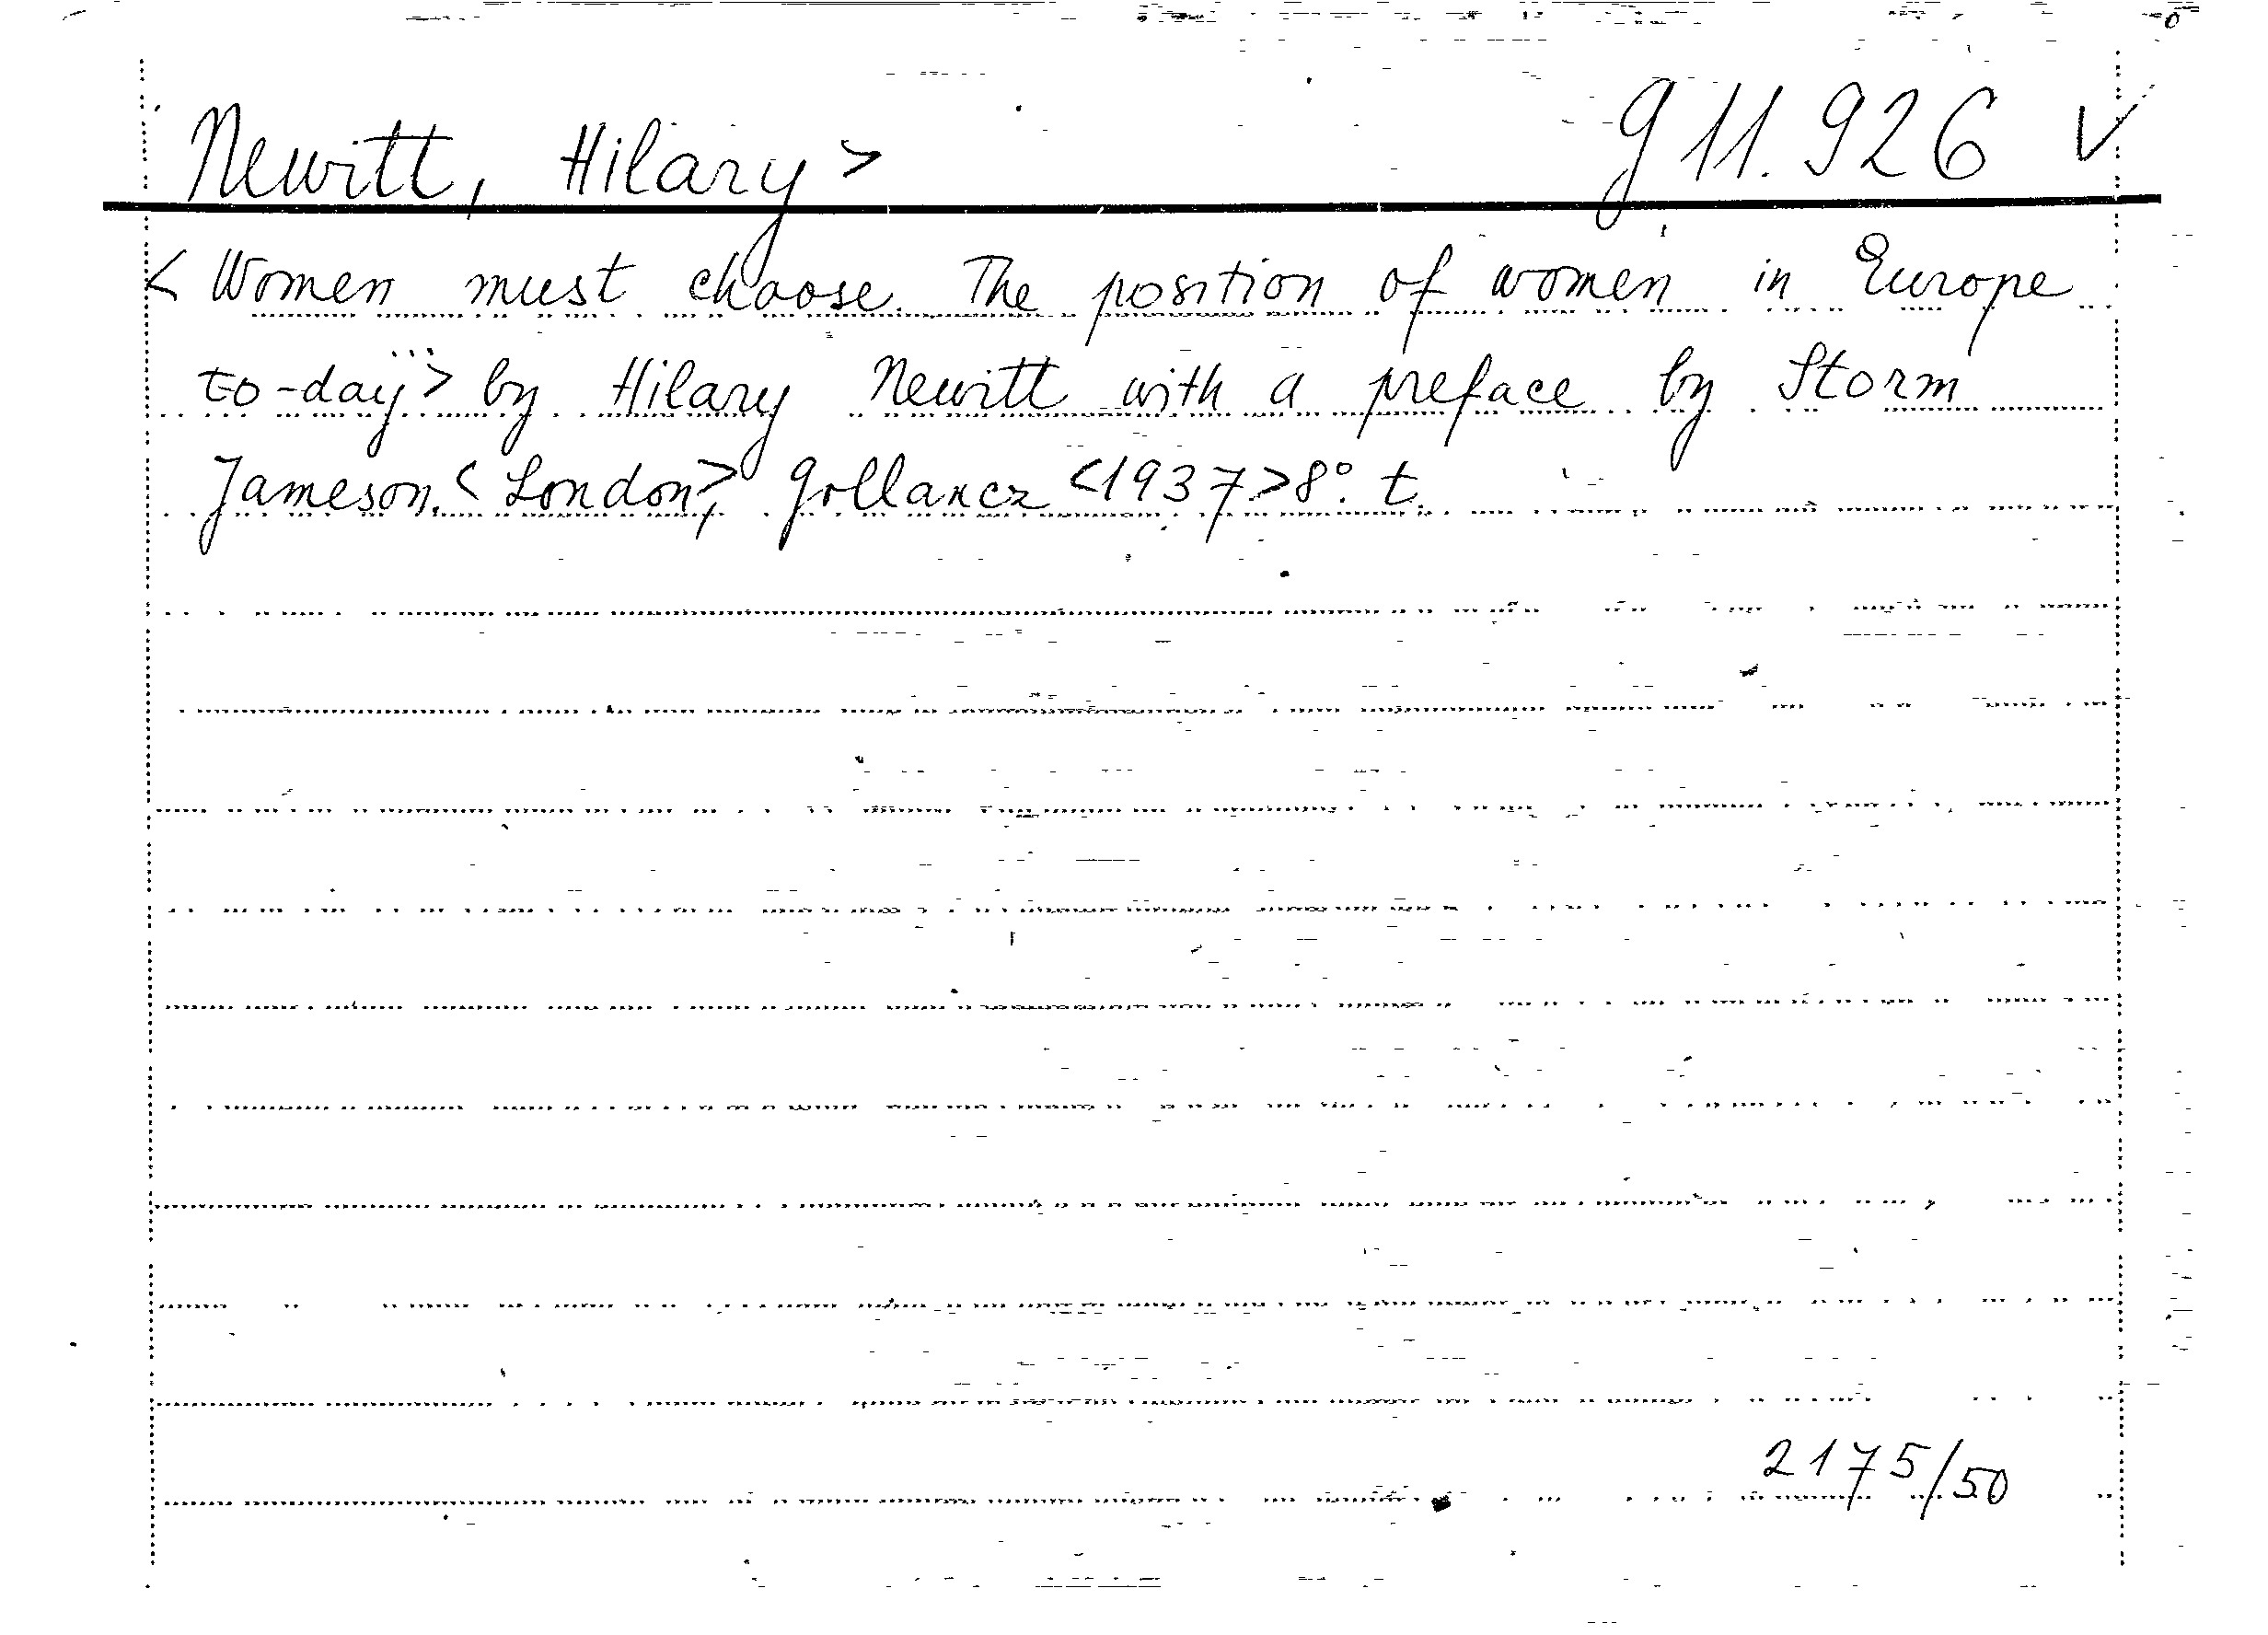 Newitt, Hilary> 911.926 V
< Women must choose. The position of women in Europe
to-day"> by Hilary Newitt with a preface by Storm
Jameson. <London>, Gollancz <1937> 8°. t.
2175/50